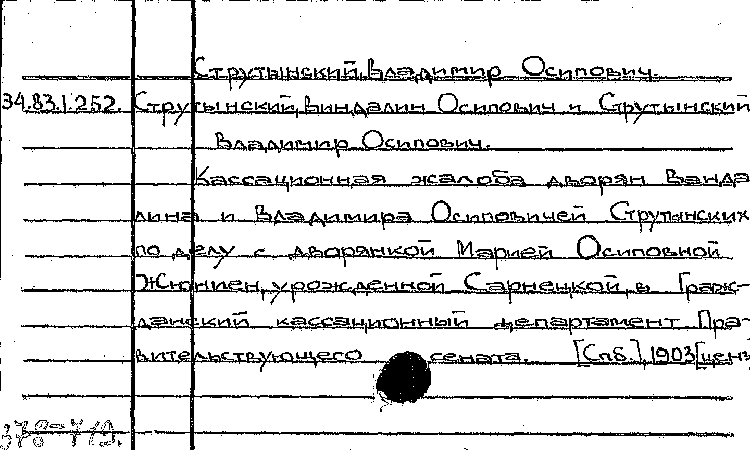 Струтынский, Владимир Осипович.
34.83.1.252. Струтынский, Виндалин Осипович и Струтынский
Владимир Осипович.
Кассационная жалоба дворян Ванда
лина и Владимира Осиповичей Струтынских
по делу с дворянкой Марией Осиповной
Жюниен, урожденной Сарнецкой, в Граж-
данский кассационный департамент Пра-
вительствующего сената. [Спб.], 1903 [ценз